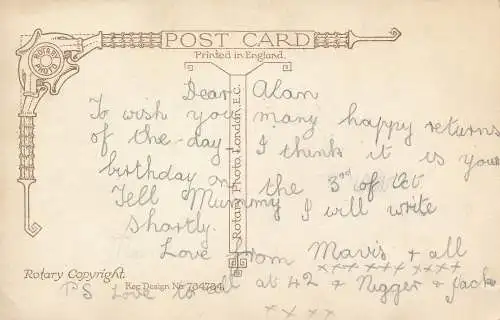 ROTARY PHOTO
POST CARD
Printed in England.
Rotary Photo, London, E.C.
Dear Alan
To wish you many happy returns
of the day I think it is your
birthday on the 3rd of Oct
Tell Mummy I will write
shortly.
Love from Mavis & all
xxxx xxxx xxxx
Rotary Copyright.
Reg Design No 734784.
PS Love to all at 42 & Nigger & Jack
xxxx